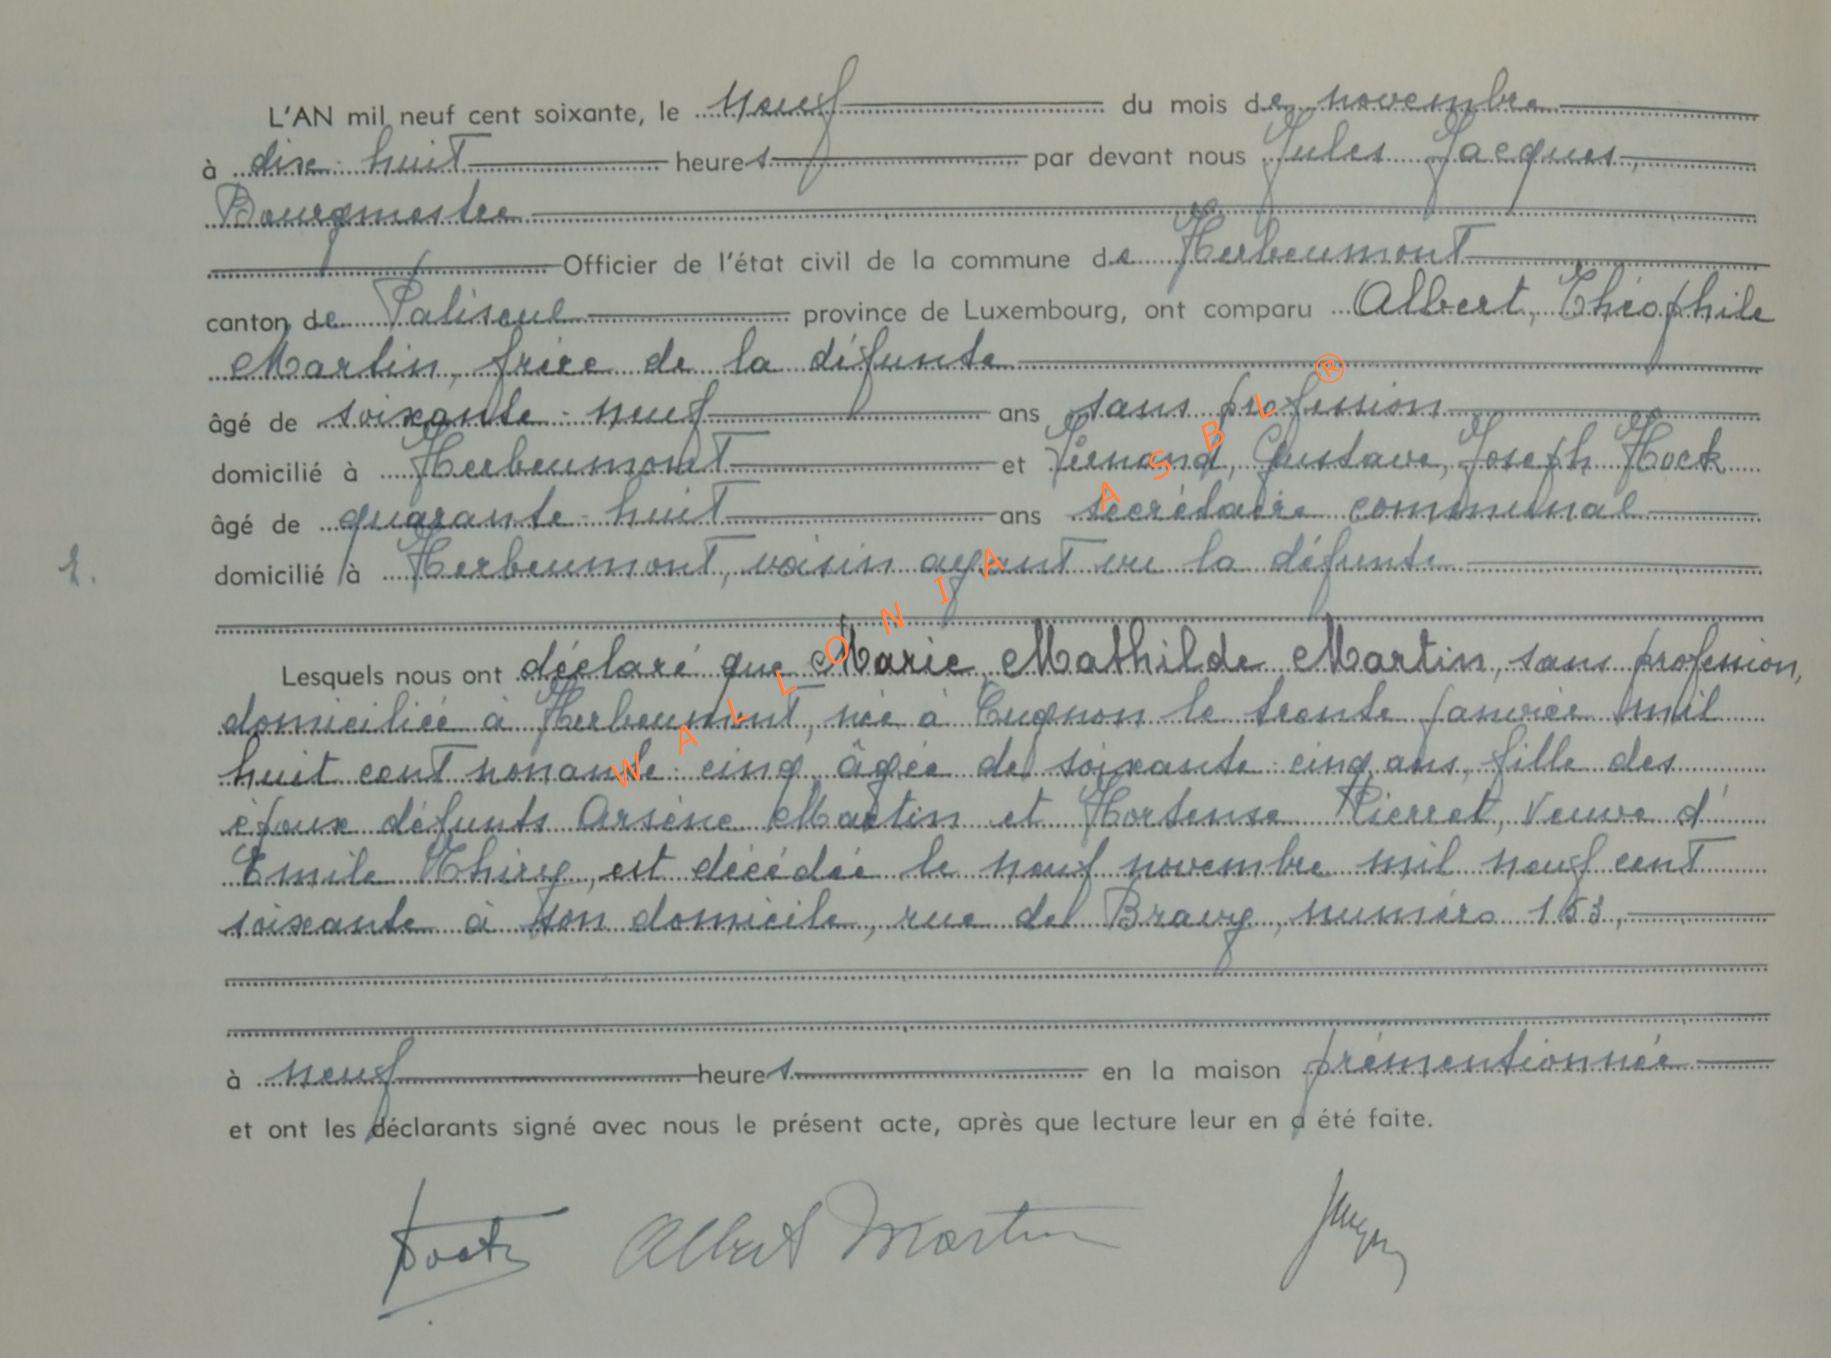 L'AN mil neuf cent soixante, le neuf du mois de novembre
à dix-huit heures par devant nous Jules Jacques,
Bourgmestre
Officier de l'état civil de la commune de Herbeumont
canton de Paliseul province de Luxembourg, ont comparu Albert, Théophile
Martin, frère de la défunte
âgé de soixante-neuf ans sans profession
domicilié à Herbeumont et Fernand, Gustave, Joseph Hock
âgé de quarante-huit ans secrétaire communal
domicilié à Herbeumont, voisin ayant vu la défunte
Lesquels nous ont déclaré que Marie Mathilde Martin, sans profession,
domiciliée à Herbeumont, née à Cugnon le trente janvier mil
huit cent nonante-cinq âgée de soixante-cinq ans, fille des
époux défunts Arsène Martin et Hortense Pierret, veuve d'
Emile Thiry, est décédée le neuf novembre mil neuf cent
soixante à son domicile, rue de Bravy, numéro 153,
à neuf heures en la maison prémentionnée
et ont les déclarants signé avec nous le présent acte, après que lecture leur en a été faite.
Albert Martin
WALLONIA ASBL ®